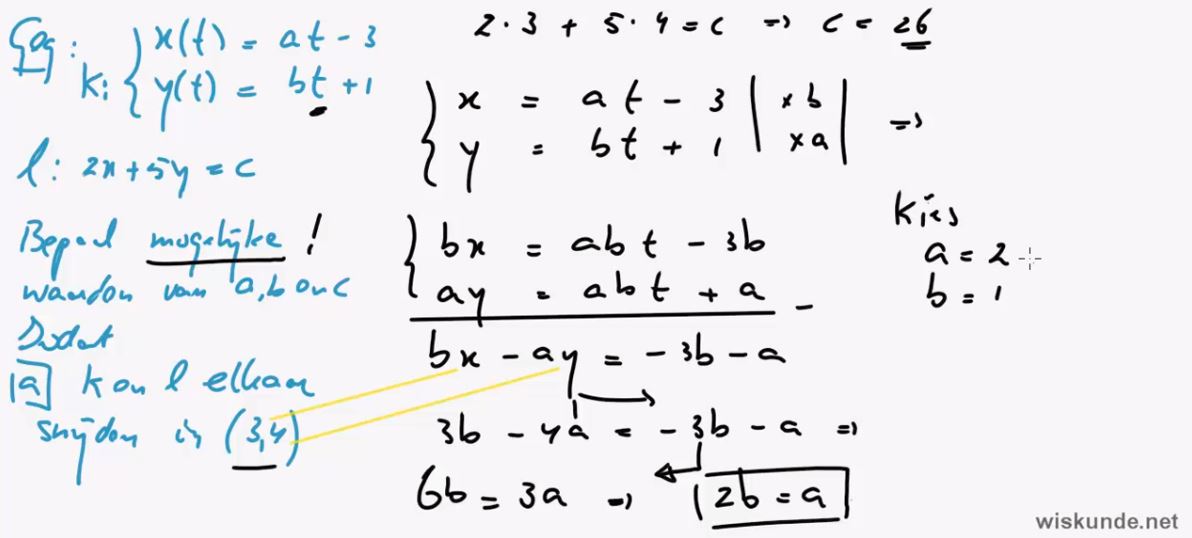 Geg:
k: { x(t) = at - 3
y(t) = bt + 1
l: 2x + 5y = c
Bepaal mogelijke !
waarden van a, b en c
Zodat
a k en l elkaar
snijden in (3,4)
2 · 3 + 5 · 4 = c => c = 26
{ x = at - 3 | × b |
y = bt + 1 | × a | =>
{ bx = abt - 3b
ay = abt + a -
bx - ay = -3b - a
3b - 4a = -3b - a =>
6b = 3a => 2b = a
Kies
a = 2
b = 1
wiskunde.net